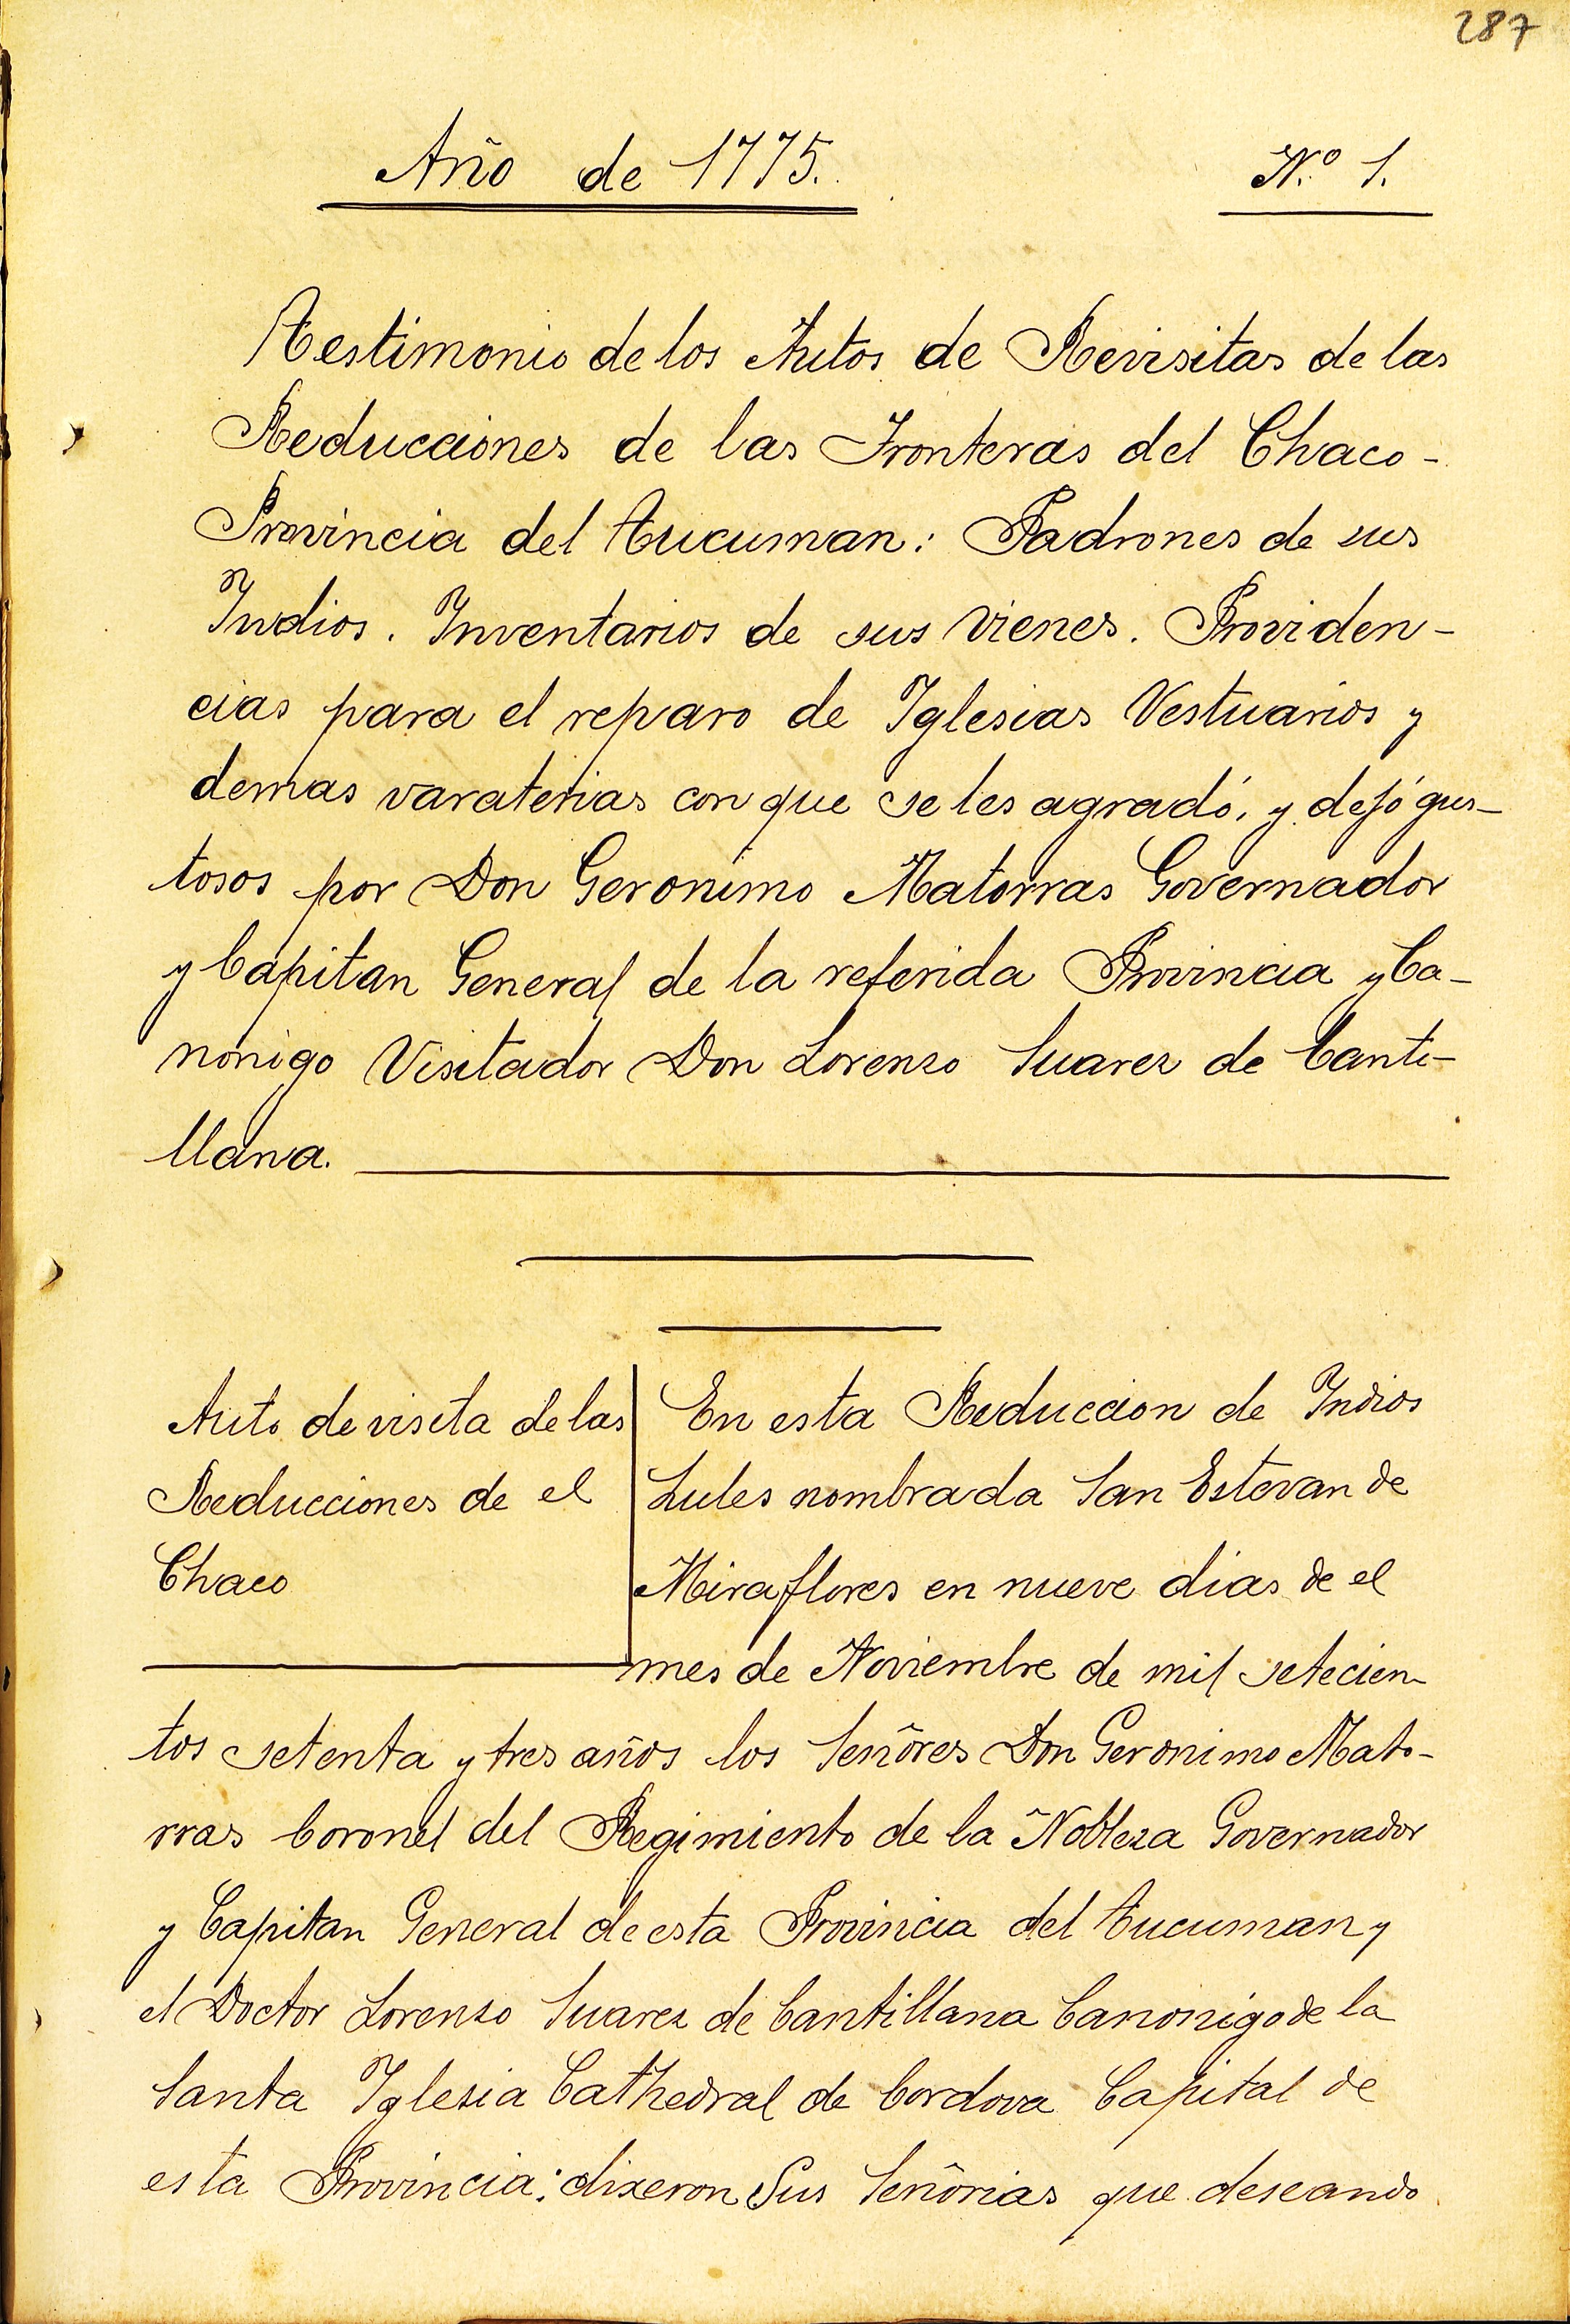 287
Año de 1775.
Nº 1.
Testimonio de los Autos de Revisitas de las
Reducciones de las Fronteras del Chaco-
Provincia del Tucuman: Padrones de sus
Indios. Inventarios de sus vienes. Providen-
cias para el reparo de Iglesias Vestuarios y
demas varaterias con que se les agradó, y dejó gus-
tosos por Don Geronimo Matorras Governador
y Capitan General de la referida Provincia y Ca-
nonigo Visitador Don Lorenzo Suarez de Canti-
llana.
Auto de visita de las
Reducciones de el
Chaco
En esta Reduccion de Indios
Lules nombrada San Estevan de
Miraflores en nueve dias de el
mes de Noviembre de mil setecien-
tos setenta y tres años los Señores Don Geronimo Mato-
rras Coronel del Regimiento de la Nobleza Governador
y Capitan General de esta Provincia del Tucuman y
el Doctor Lorenzo Suarez de Cantillana Canonigo de la
Santa Iglesia Cathedral de Cordova Capital de
esta Provincia: dixeron Sus Señorias que deseando